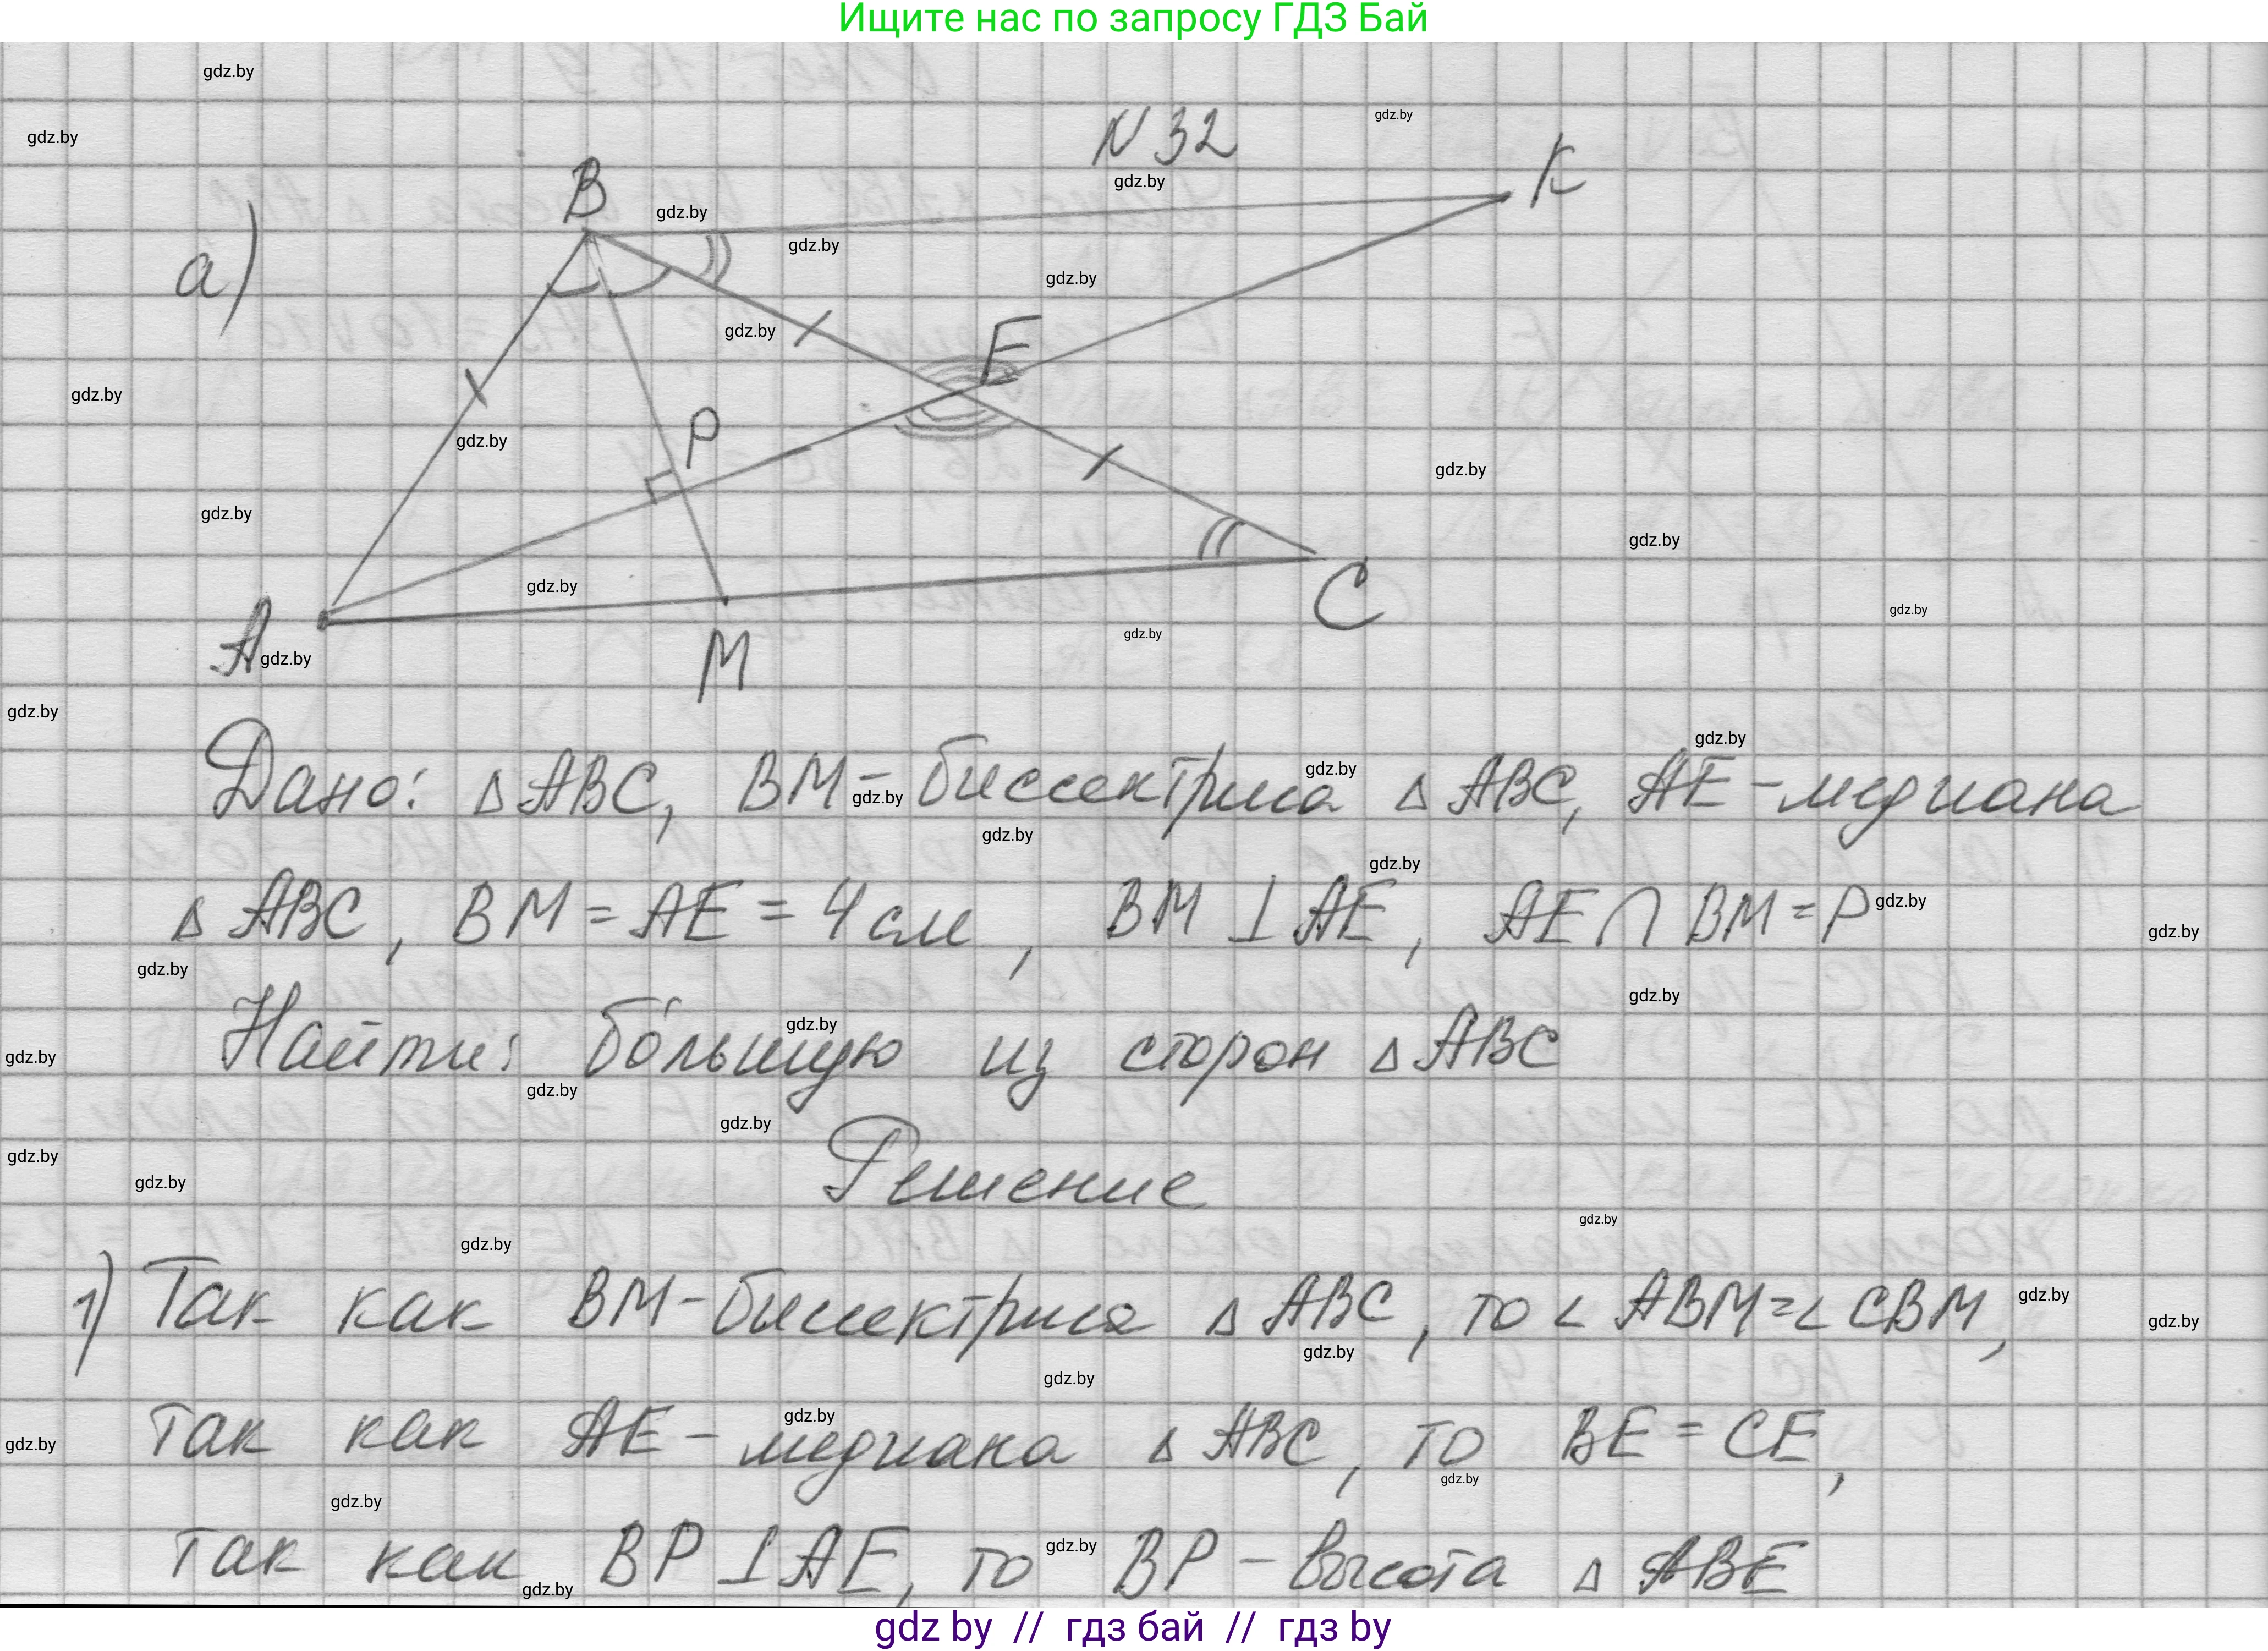 Ищите нас по запросу ГДЗ Бай
N 32
а)
B
K
E
P
A
M
C
Дано: Δ ABC, BM - биссектриса Δ ABC, AE - медиана
Δ ABC, BM = AE = 4 см, BM ⊥ AE, AE ∩ BM = P
Найти: бо́льшую из сторон Δ ABC
Решение
1) Так как BM - биссектриса Δ ABC, то ∠ ABM = ∠ CBM,
так как AE - медиана Δ ABC, то BE = CE,
так как BP ⊥ AE, то BP - высота Δ ABE
gdz by // гдз бай // гдз by